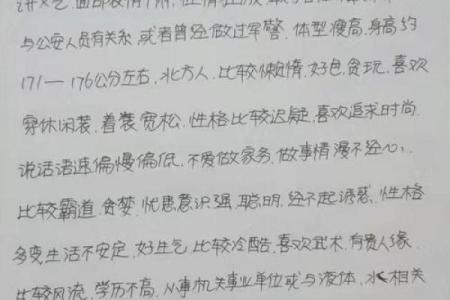 讲义气,面部表情
与公安人员有关系,或者曾经做过军警.体型瘦高,身高约
171—176公分左右,北方人.比较懒惰.好色,贪玩,喜欢
穿休闲装,着装宽松,性格比较迟疑,喜欢追求时尚.
说话语速偏慢偏低,不爱做家务,做事情漫不经心,
比较霸道,贪婪,忧患意识强,聪明,经不起诱惑,性格
多变生活不安定,好生气,比较冷酷,喜欢武术,有贵人缘
比较风流,学历不高,从事机关事业单位或与液体,水相关